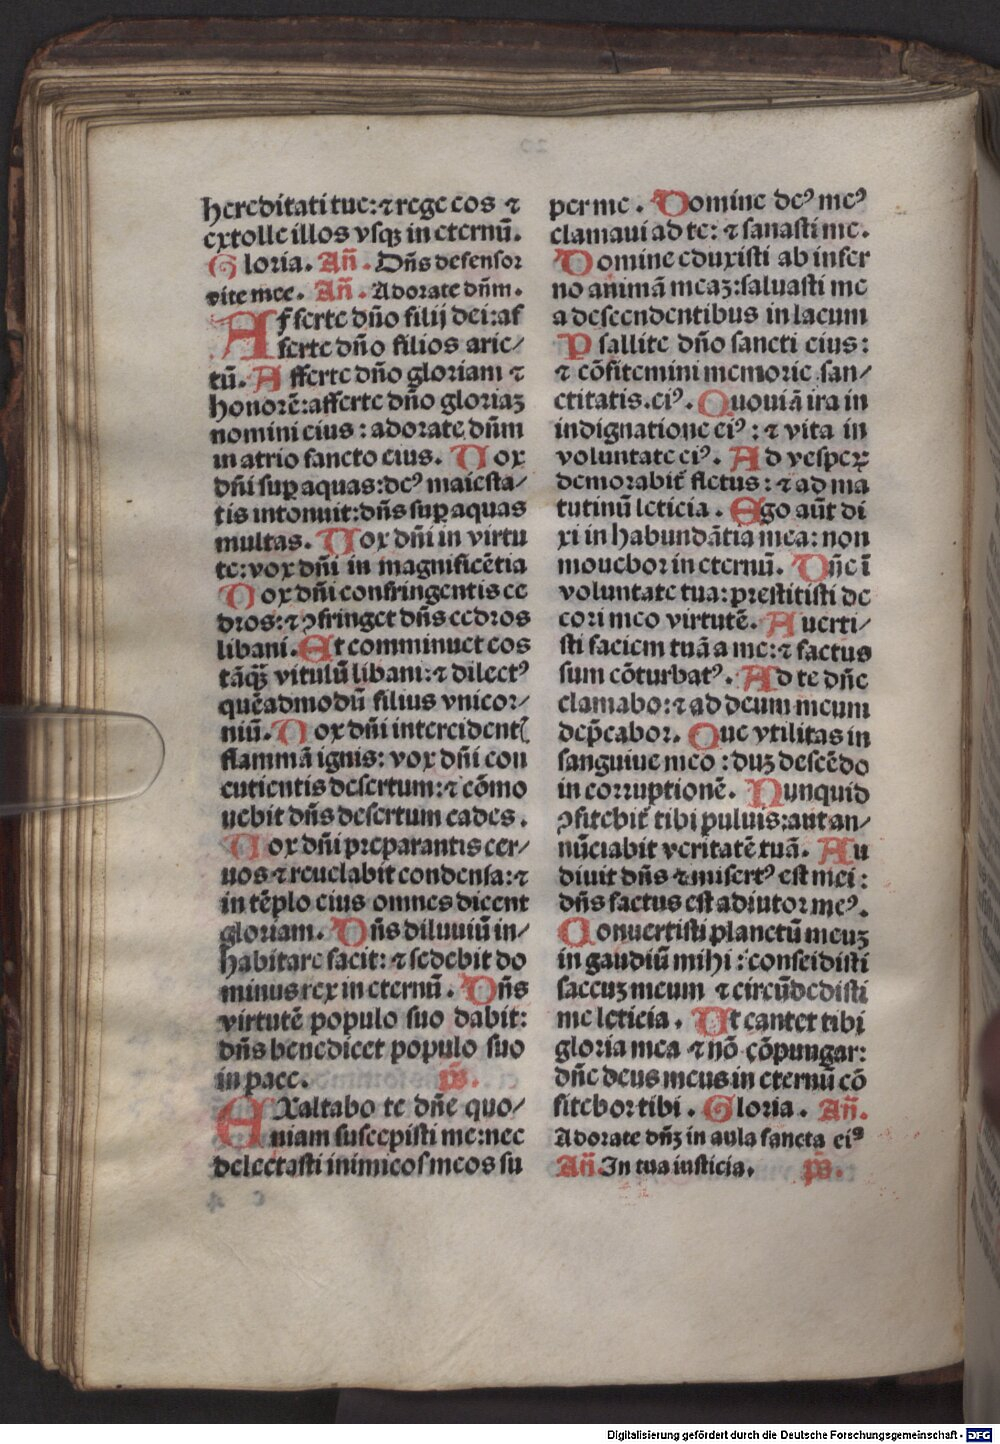 hereditati tue: ⁊ rege eos ⁊
extolle illos vsqꝫ in eternū.
Gloria. Añ. Dñs defensor
vite mee. Añ. Adorate dñm.
Afferte dño filij dei: af
ferte dño filios arie/
tū. Afferte dño gloriam ⁊
honorē: afferte dño gloriaꝫ
nomini eius: adorate dñm
in atrio sancto eius. Vox
dñi suꝑ aquas: deꝰ maiesta/
tis intonuit: dñs suꝑ aquas
multas. Vox dñi in virtu
te: vox dñi in magnificētia
Vox dñi confringentis ce
dros: ⁊ ꝯfringet dñs cedros
libani. Et comminuet eos
tāqꝫ vitulū libani: ⁊ dilectꝰ
quēadmodū filius vnicor/
niū. Vox dñi intercidentꝭ
flammā ignis: vox dñi con
cutientis desertum: ⁊ cōmo
uebit dñs desertum cades.
Vox dñi preparantis cer/
uos ⁊ reuelabit condensa: ⁊
in tēplo eius omnes dicent
gloriam. Dñs diluuiū in/
habitare facit: ⁊ sedebit do
minus rex in eternū. Dñs
virtutē populo suo dabit:
dñs benedicet populo suo
in pace. p̄s.
EXaltabo te dñe quo/
niam suscepisti me: nec
delectasti inimicos meos su
per me. Domine deꝰ meꝰ
clamaui ad te: ⁊ sanasti me.
Domine eduxisti ab infer
no animā meaꝫ: saluasti me
a descendentibus in lacum
Psallite dño sancti eius:
⁊ cōfitemini memorie san/
ctitatis. eiꝰ. Quoniā ira in
indignatione eiꝰ: ⁊ vita in
voluntate eiꝰ. Ad vesperꝫ
demorabit̄ fletus: ⁊ ad ma
tutinū leticia. Ego aūt di
xi in habundātia mea: non
mouebor in eternū. Dñe ī
voluntate tua: prestitisti de
cori meo virtutē. Auerti/
sti faciem tuā a me: ⁊ factus
sum cōturbatꝰ. Ad te dñe
clamabo: ⁊ ad deum meum
dep̄cabor. Que vtilitas in
sanguine meo: duꝫ descēdo
in corruptionē. Nunquid
ꝯfitebit̄ tibi puluis: aut an/
nūciabit veritatē tuā. Au
diuit dñs ⁊ misertꝰ est mei:
dñs factus est adiutor meꝰ.
Conuertisti planctū meuꝫ
in gaudiū mihi: conscidisti
saccuꝫ meum ⁊ circūdedisti
me leticia. Ut cantet tibi
gloria mea ⁊ nō cōpungar:
dñe deus meus in eternū cō
fitebor tibi. Gloria. Añ.
Adorate dñꝫ in aula sancta eiꝰ
Añ In tua iusticia. p̄s.
Digitalisierung gefördert durch die Deutsche Forschungsgemeinschaft - DFG